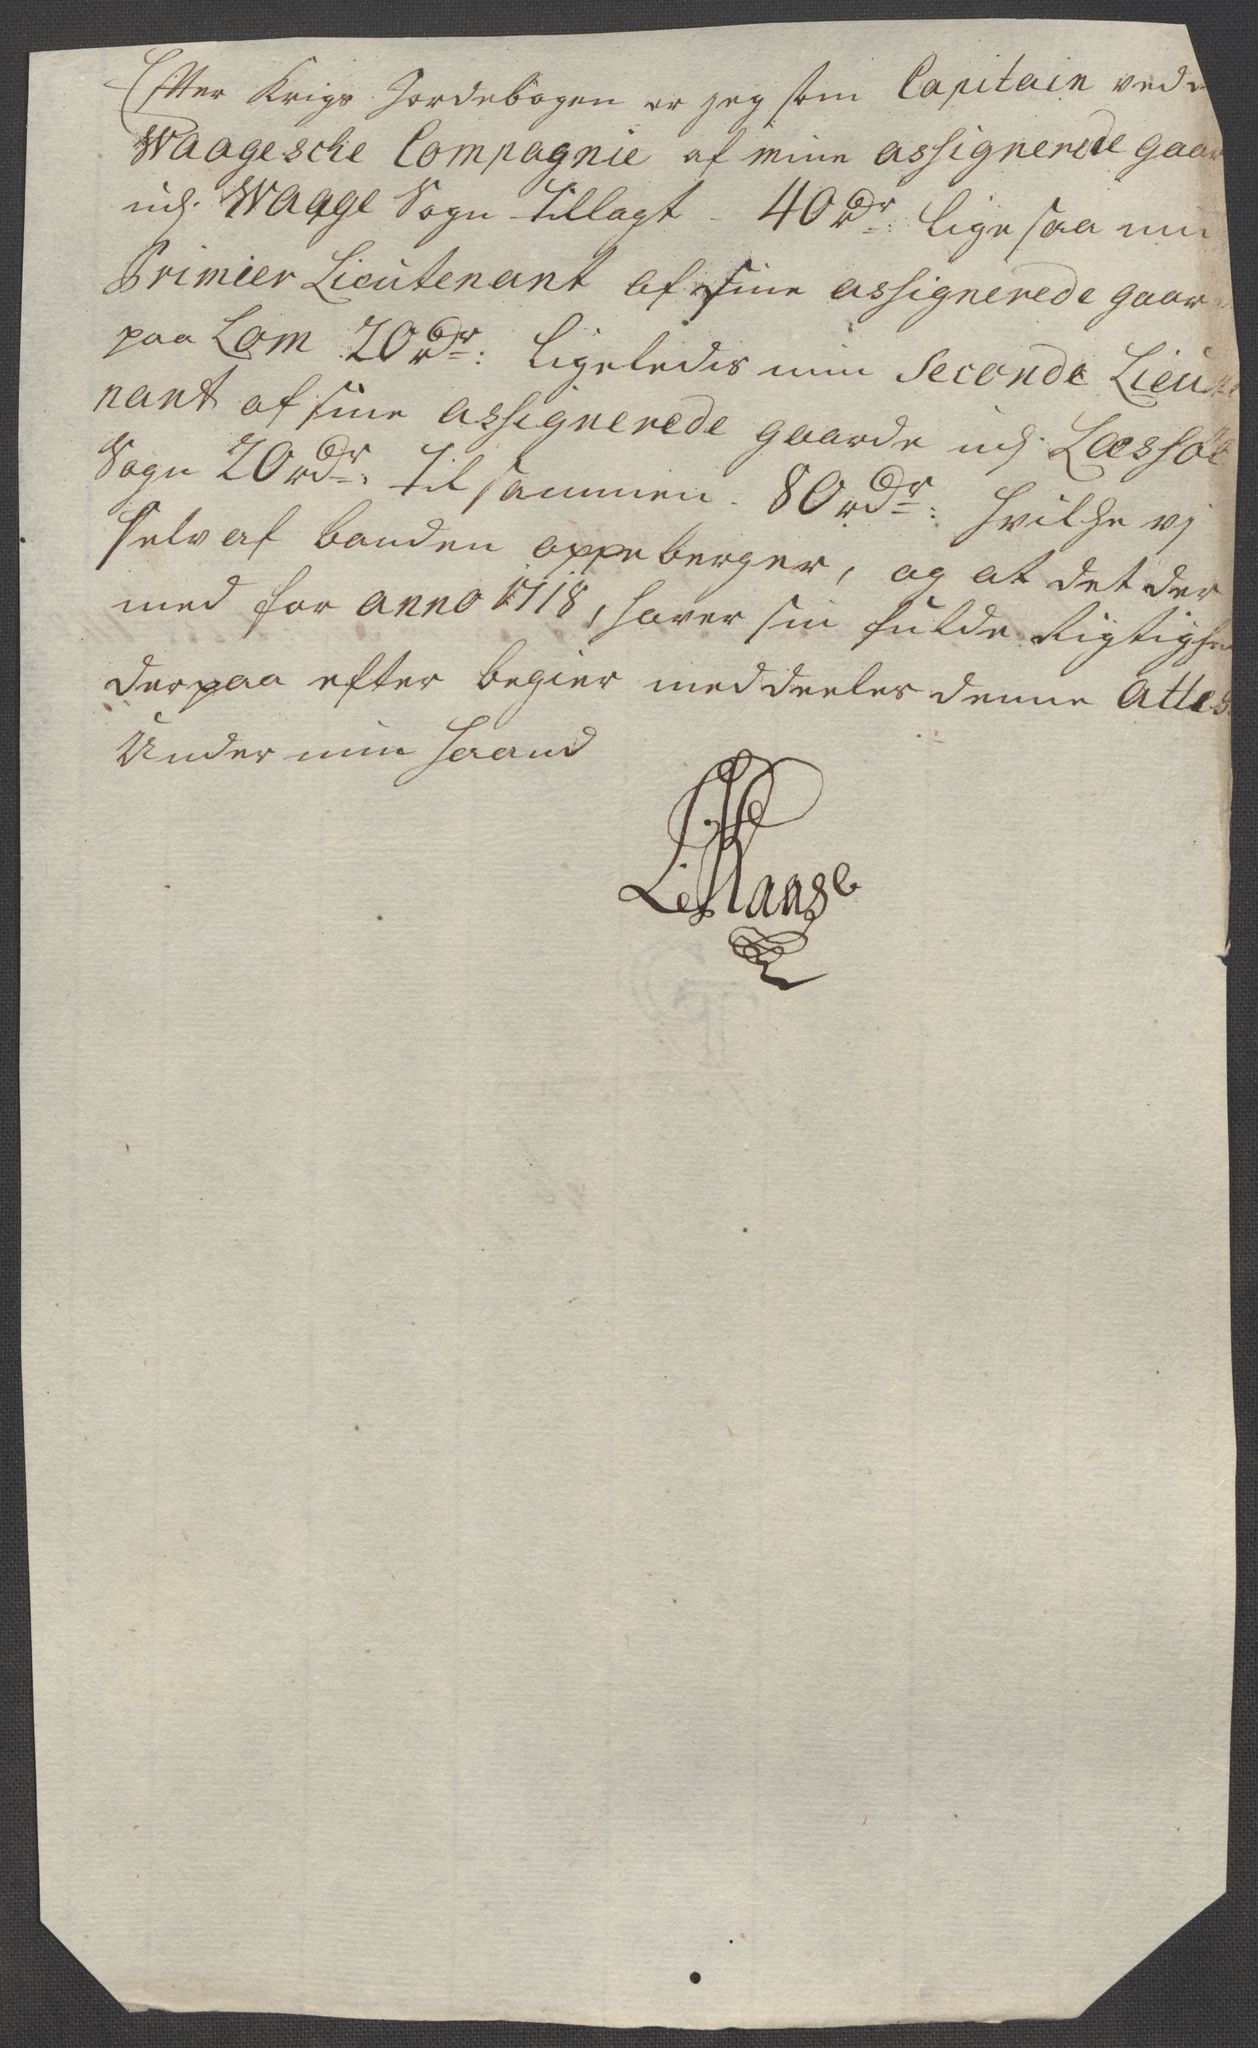 Efter Krigs Jordebogen er jeg som Capitain ved d
Waagesche Compagnie af mine assignerede gaar
udj. Waage Sogn tillagt - 40 rdr: lige saa min
Primier Lieutenant af sine assignerede gaar
paa Lom 20 rdr: ligeledis min Seconde Lieute
nant af sine assignerede gaarde udj. Læsshoe
Sogn 20 rdr: til sammen - 80 rdr: hvilke vj
selv af bonden oppeberger, og at det der
med for anno 1718, haver sin fulde Rigtighe
derpaa efter begier meddeeles denne Attes
Under min haand